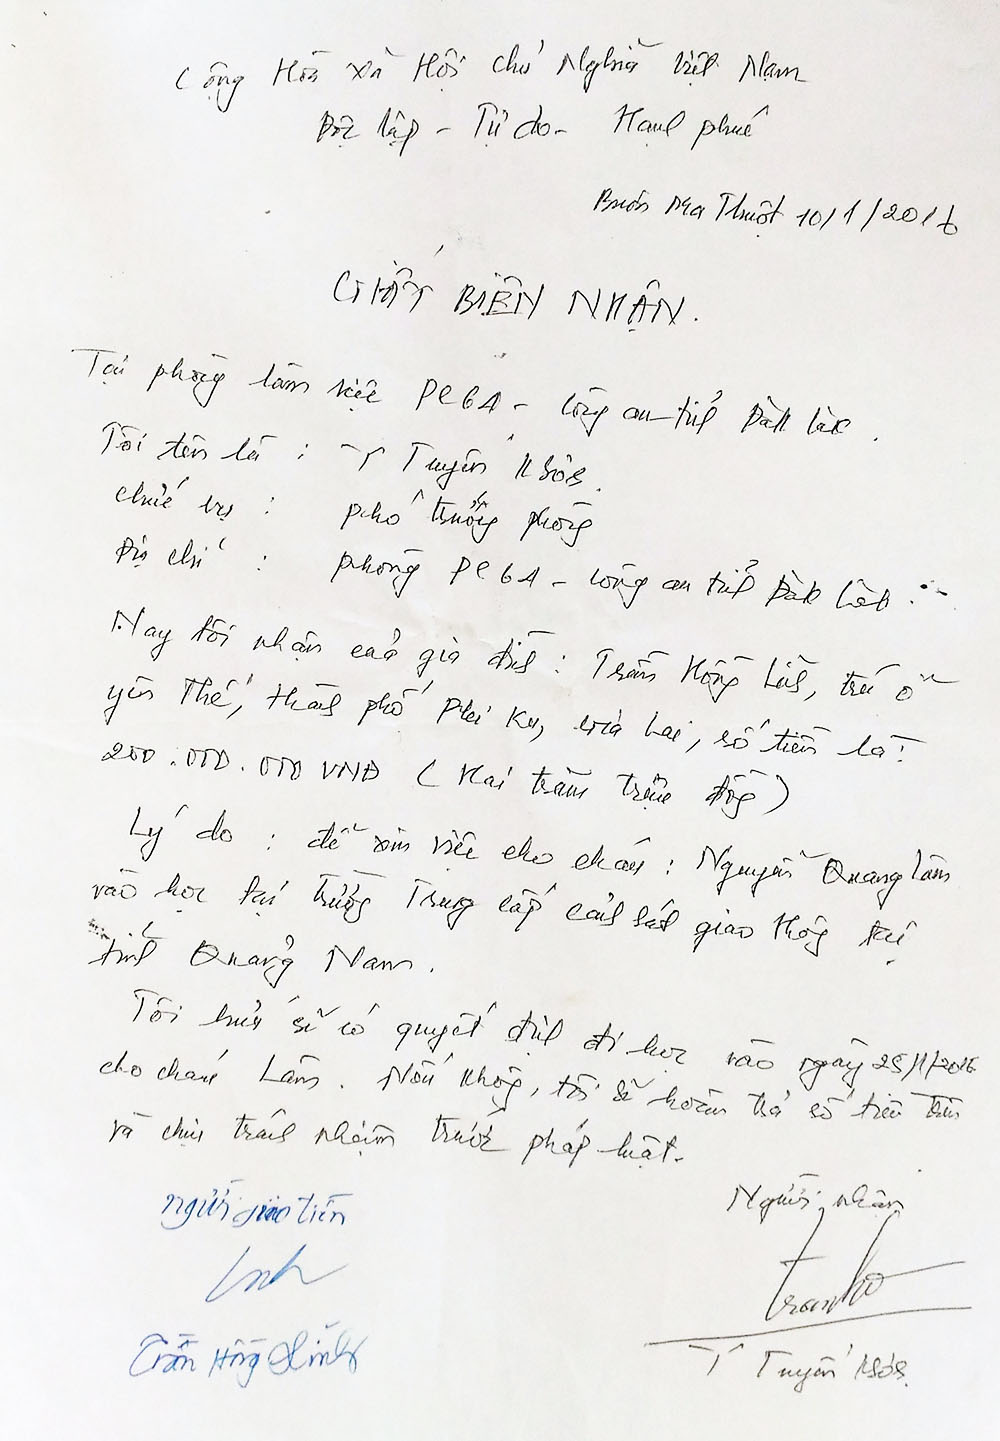 Cộng Hòa xã Hội chủ Nghĩa Việt Nam
Độc lập - Tự do - Hạnh phúc
Buôn Ma Thuột 10/1/2016
GIẤY BIÊN NHẬN.
Tại phòng làm việc PC64 - Công an tỉnh Đăk Lăk.
Tôi tên là : Y Tuyến Ksơr.
chức vụ : phó trưởng phòng
Địa chỉ : phòng PC64 - Công an tỉnh Đăk Lăk.
Nay tôi nhận của gia đình : Trần Hồng Lĩnh, trú ở
yên Thế, thành phố Plei Ku, Gia Lai, số tiền là :
200.000.000 VNĐ ( Hai trăm triệu đồng )
Lý do : để xin việc cho cháu : Nguyễn Quang Lâm
vào học tại trường Trung cấp cảnh sát giao thông tại
tỉnh Quảng Nam.
Tôi hứa sẽ có quyết định đi học vào ngày 25/1/2016
cho cháu Lâm. Nếu không, tôi sẽ hoàn trả số tiền trên
và chịu trách nhiệm trước pháp luật.
người giao tiền
Người nhận
Trần Hồng Lĩnh
Y Tuyến Ksơr.